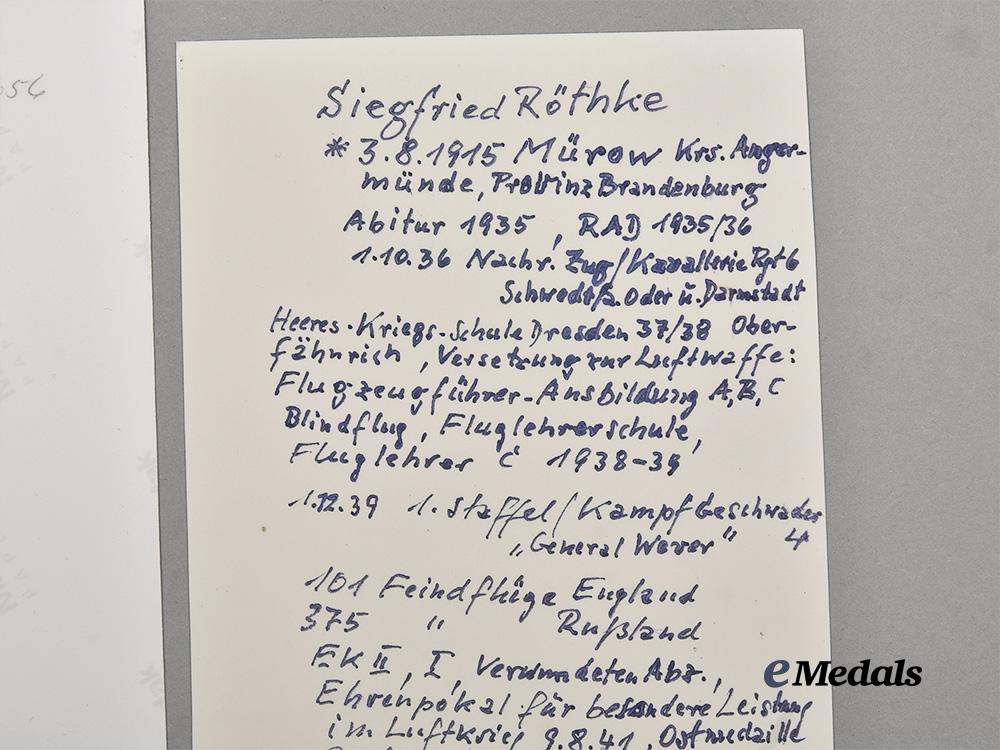 56
Siegfried Röthke
* 3.8.1915 Mürow Krs. Anger-
münde, Provinz Brandenburg
Abitur 1935, RAD 1935/36
1.10.36 Nachr. Zug/Kavallerie Rgt 6
Schwedt/a. Oder ü. Darmstadt
Heeres-Kriegs-Schule Dresden 37/38 Ober-
fähnrich, Versetzung zur Luftwaffe:
Flugzeugführer-Ausbildung A, B, C
Blindflug, Fluglehrerschule,
Fluglehrer C 1938-39
1.12.39 1. Staffel/Kampf Geschwader
„General Wever" 4
101 Feindflüge England
375 " Rußland
EK II, I, Verwundeten Abz.,
Ehrenpokal für besondere Leistung
im Luftkrieg 9.8.41, Ostmedaille
eMedals